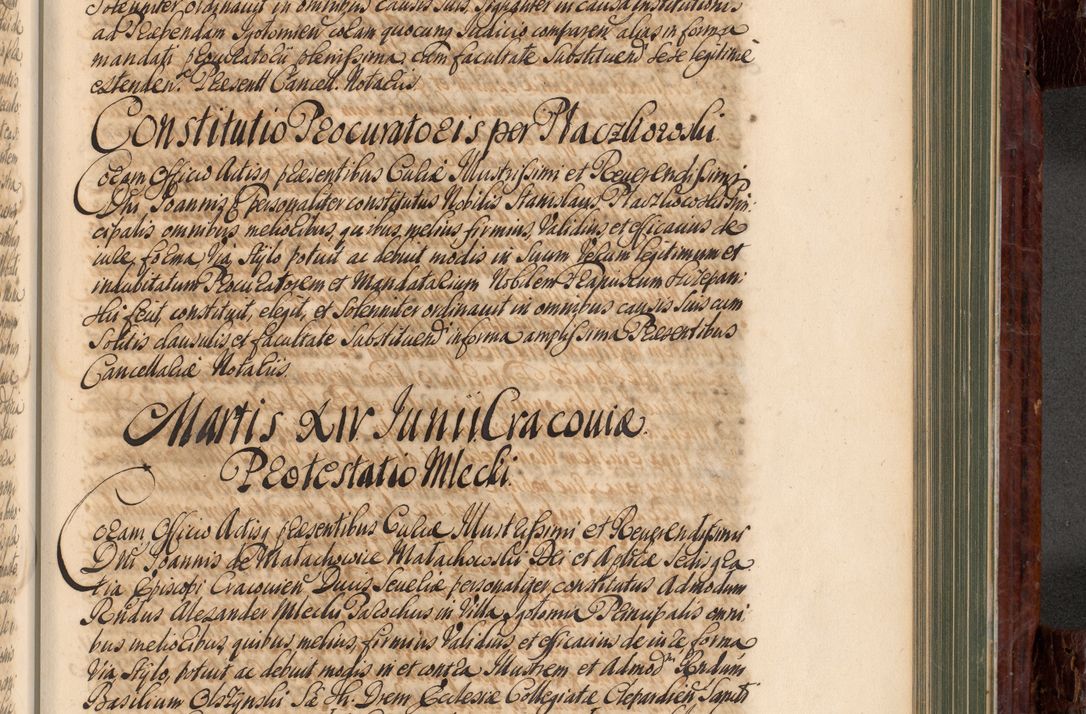 Solenniter ordinavit in omnibus causis suis signanter in causa institutionis
ad Praebendam Igolomien coram quocunq Judicio comparen alias in forma
mandati procuratorii plenissima cum facultate substituend sese legitime
ostenden. Praesent Cancell. Notariis.
Constitutio Procuratoris per Płaczkowski
Coram Officio Actisq praesentibus Curiae Illustrissimi et Reverendissimi
Dni Joannis E personaliter constitutus Nobilis Stanislaus Płaczkowski Prin-
cipalis omnibus melioribus, quibus melius firmius, validius et efficacius de
iure, forma via stylo potuit ac debuit modis in suum verum legitimum et
indubitatum Procuratorem et Mandatarium Nobilem
fecit, constituit, elegit, et solenniter ordinavit in omnibus causis suis cum
solitis clausulis et facultate substituend in forma amplissima Praesentibus
Cancellariae Notariis.
Martis XIV Junii Cracoviae.
Protestatio Mlecki.
Coram Officio Actisq praesentibus Curiae Illustrissimi et Reverendissimi
Dni Joannis de Małachowice Małachowski Dei et Aplicae Sedis gra
tia Episcopi Cracovien Ducis Severiae personaliter constitutus Admodum
Rndus Alexander Mlecki Parochus in Villa Igołomia Principalis omni
bus melioribus, quibus melius, firmius validius et efficacius de iure forma
via stylo, potuit ac debuit modis in et contra Illustrem et Admod Rndum
Basilium Olszynski Sae Th. Drem Ecclesiae Collegiatae Clepardien Sancti